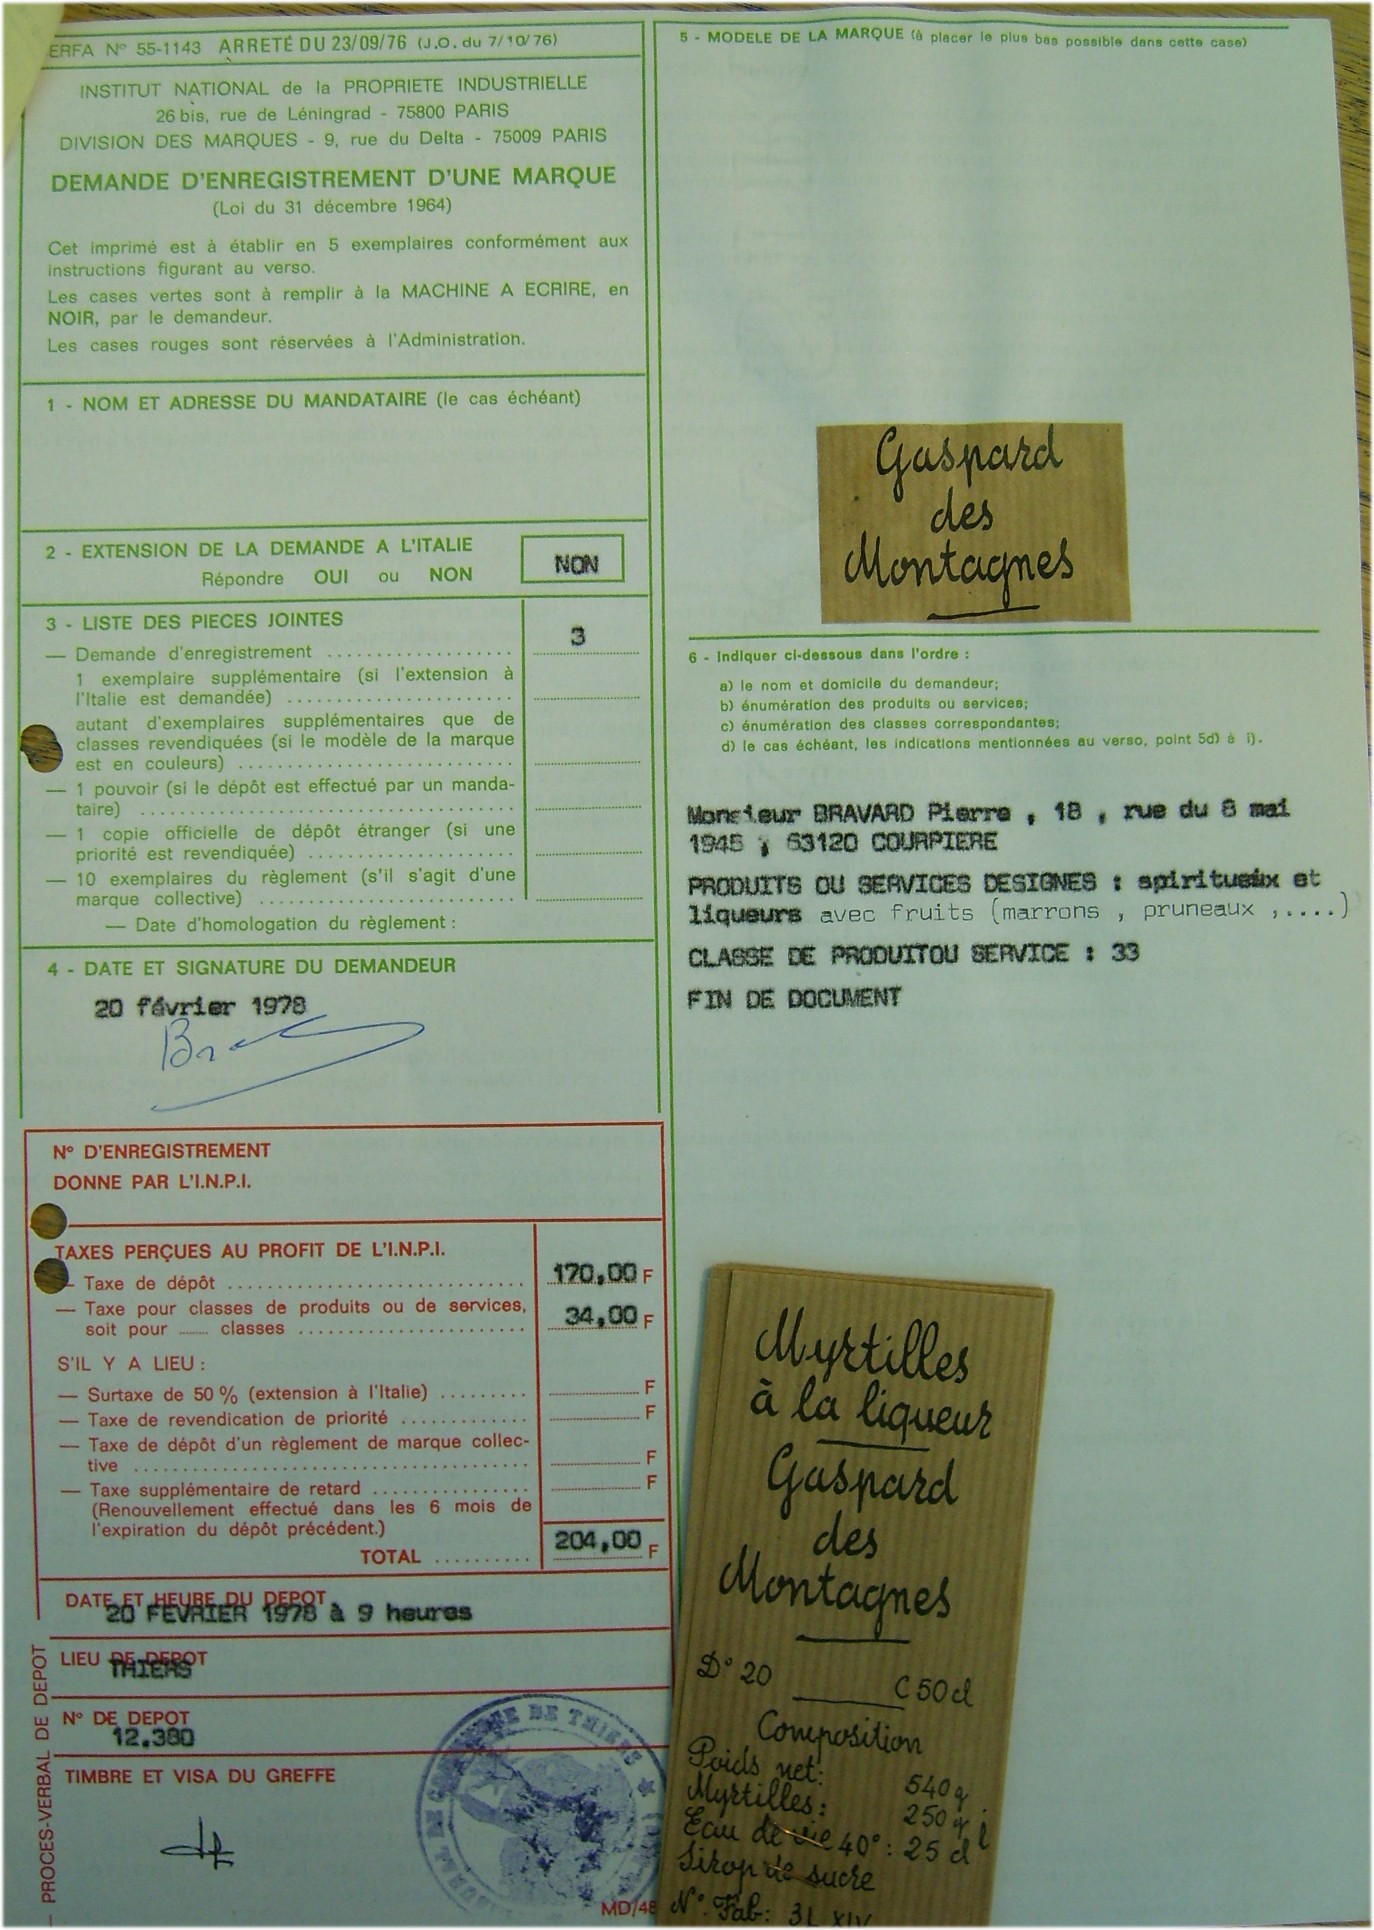 ERFA N° 55-1143 ARRETÉ DU 23/09/76 (J.O. du 7/10/76)
INSTITUT NATIONAL de la PROPRIETE INDUSTRIELLE
26 bis, rue de Léningrad - 75800 PARIS
DIVISION DES MARQUES - 9, rue du Delta - 75009 PARIS
DEMANDE D'ENREGISTREMENT D'UNE MARQUE
(Loi du 31 décembre 1964)
Cet imprimé est à établir en 5 exemplaires conformément aux
instructions figurant au verso.
Les cases vertes sont à remplir à la MACHINE A ECRIRE, en
NOIR, par le demandeur.
Les cases rouges sont réservées à l'Administration.
1 - NOM ET ADRESSE DU MANDATAIRE (le cas échéant)
2 - EXTENSION DE LA DEMANDE A L'ITALIE
Répondre OUI ou NON
NON
3 - LISTE DES PIECES JOINTES
— Demande d'enregistrement ................... 3
1 exemplaire supplémentaire (si l'extension à
l'Italie est demandée) ....................
autant d'exemplaires supplémentaires que de
classes revendiquées (si le modèle de la marque
est en couleurs) .........................
— 1 pouvoir (si le dépôt est effectué par un manda-
taire) ..................................
— 1 copie officielle de dépôt étranger (si une
priorité est revendiquée) ...................
— 10 exemplaires du règlement (s'il s'agit d'une
marque collective) .......................
— Date d'homologation du règlement :
4 - DATE ET SIGNATURE DU DEMANDEUR
20 février 1978
N° D'ENREGISTREMENT
DONNE PAR L'I.N.P.I.
TAXES PERÇUES AU PROFIT DE L'I.N.P.I.
— Taxe de dépôt ............................ 170,00 F
— Taxe pour classes de produits ou de services,
soit pour ........ classes ...................... 34,00 F
S'IL Y A LIEU :
— Surtaxe de 50 % (extension à l'Italie) ......... F
— Taxe de revendication de priorité ............. F
— Taxe de dépôt d'un règlement de marque collec-
tive ....................................... F
— Taxe supplémentaire de retard ................ F
(Renouvellement effectué dans les 6 mois de
l'expiration du dépôt précédent.)
TOTAL .......... 204,00 F
DATE ET HEURE DU DEPOT
20 FEVRIER 1978 à 9 heures
LIEU DE DEPOT
THIERS
N° DE DEPOT
12.380
TIMBRE ET VISA DU GREFFE
PROCES-VERBAL DE DEPOT
DE THIERS
MD/48
5 - MODELE DE LA MARQUE (à placer le plus bas possible dans cette case)
Gaspard
des
Montagnes
6 - Indiquer ci-dessous dans l'ordre :
a) le nom et domicile du demandeur;
b) énumération des produits ou services;
c) énumération des classes correspondantes;
d) le cas échéant, les indications mentionnées au verso, point 5d) à i).
Monsieur BRAVARD Pierre , 18 , rue du 8 mai
1945 , 63120 COURPIERE
PRODUITS OU SERVICES DESIGNES : spiritueux et
liqueurs avec fruits (marrons , pruneaux ,....)
CLASSE DE PRODUITOU SERVICE : 33
FIN DE DOCUMENT
Myrtilles
à la liqueur
Gaspard
des
Montagnes
D° 20 C 50 cl
Composition
Poids net: 540 g
Myrtilles: 250 g
Eau de vie 40° : 25 cl
Sirop de sucre
N° Fab: 3L XIV